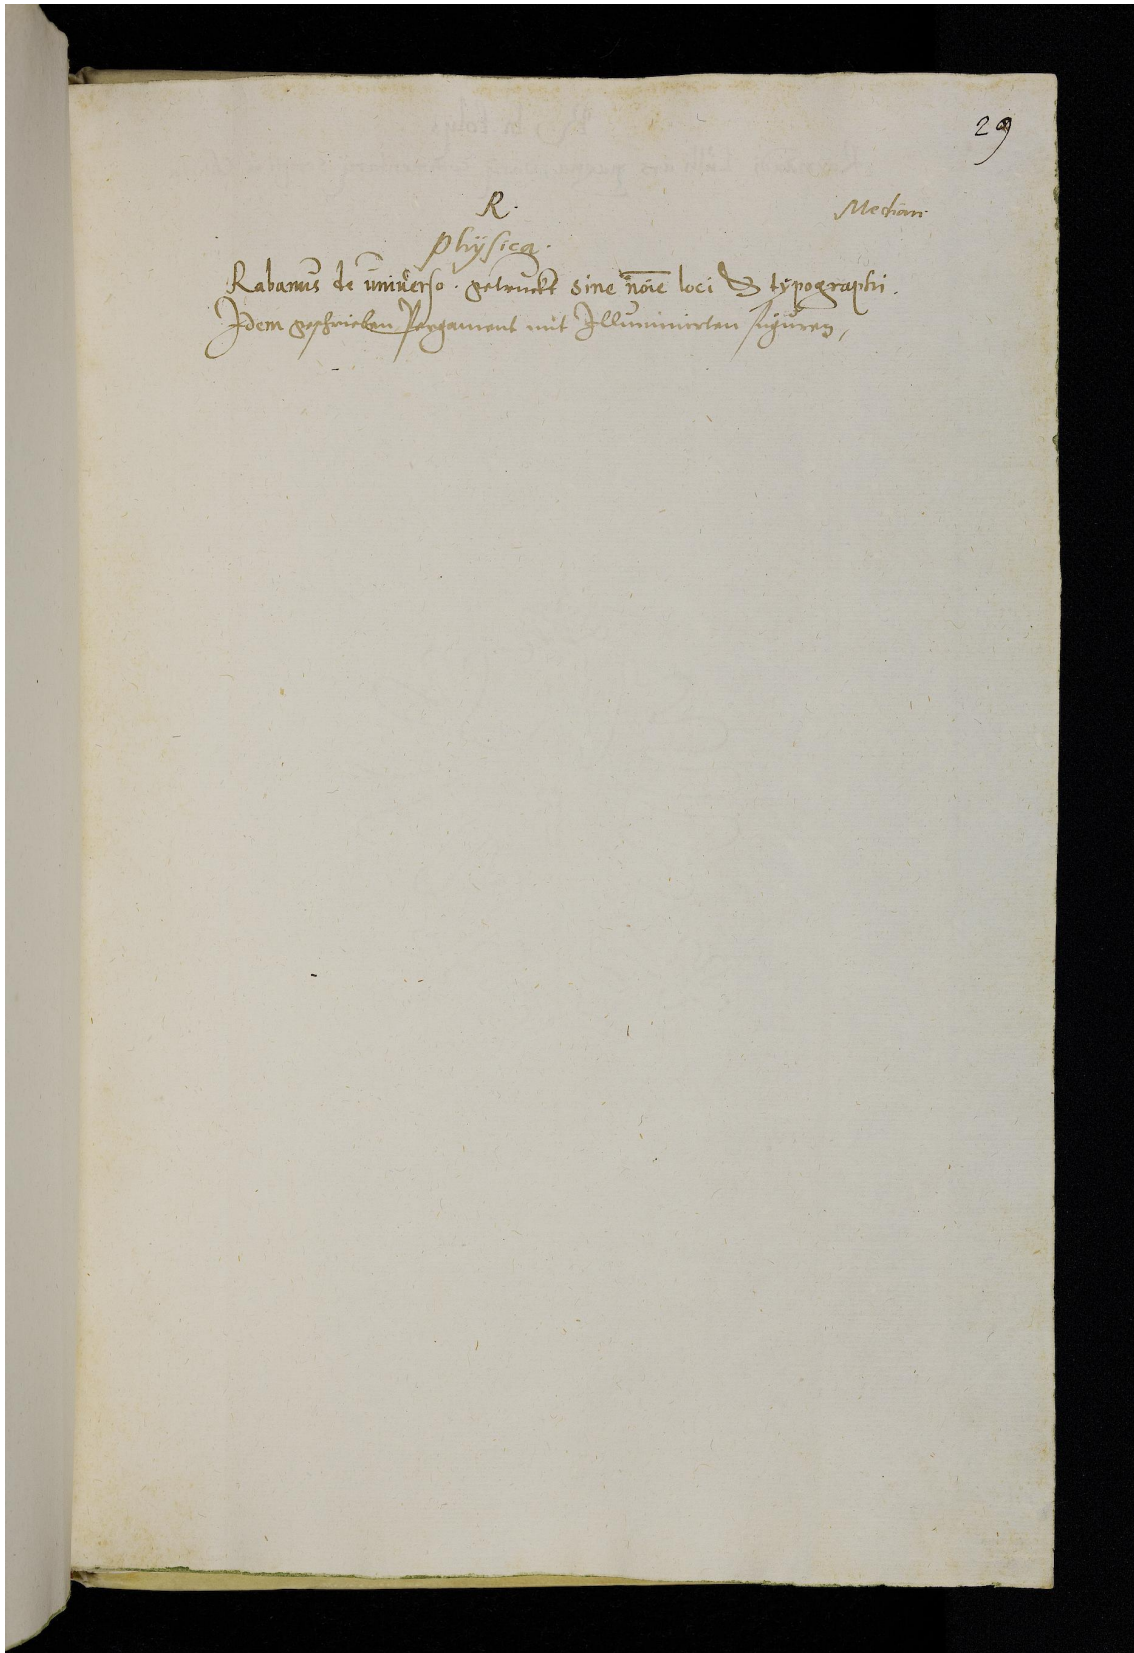 29
R.
Median.
physica.
Rabanus de universo. getruckt sine nōīe loci & typographi.
Idem geschrieben Pergament mit Illuminierten figuren,